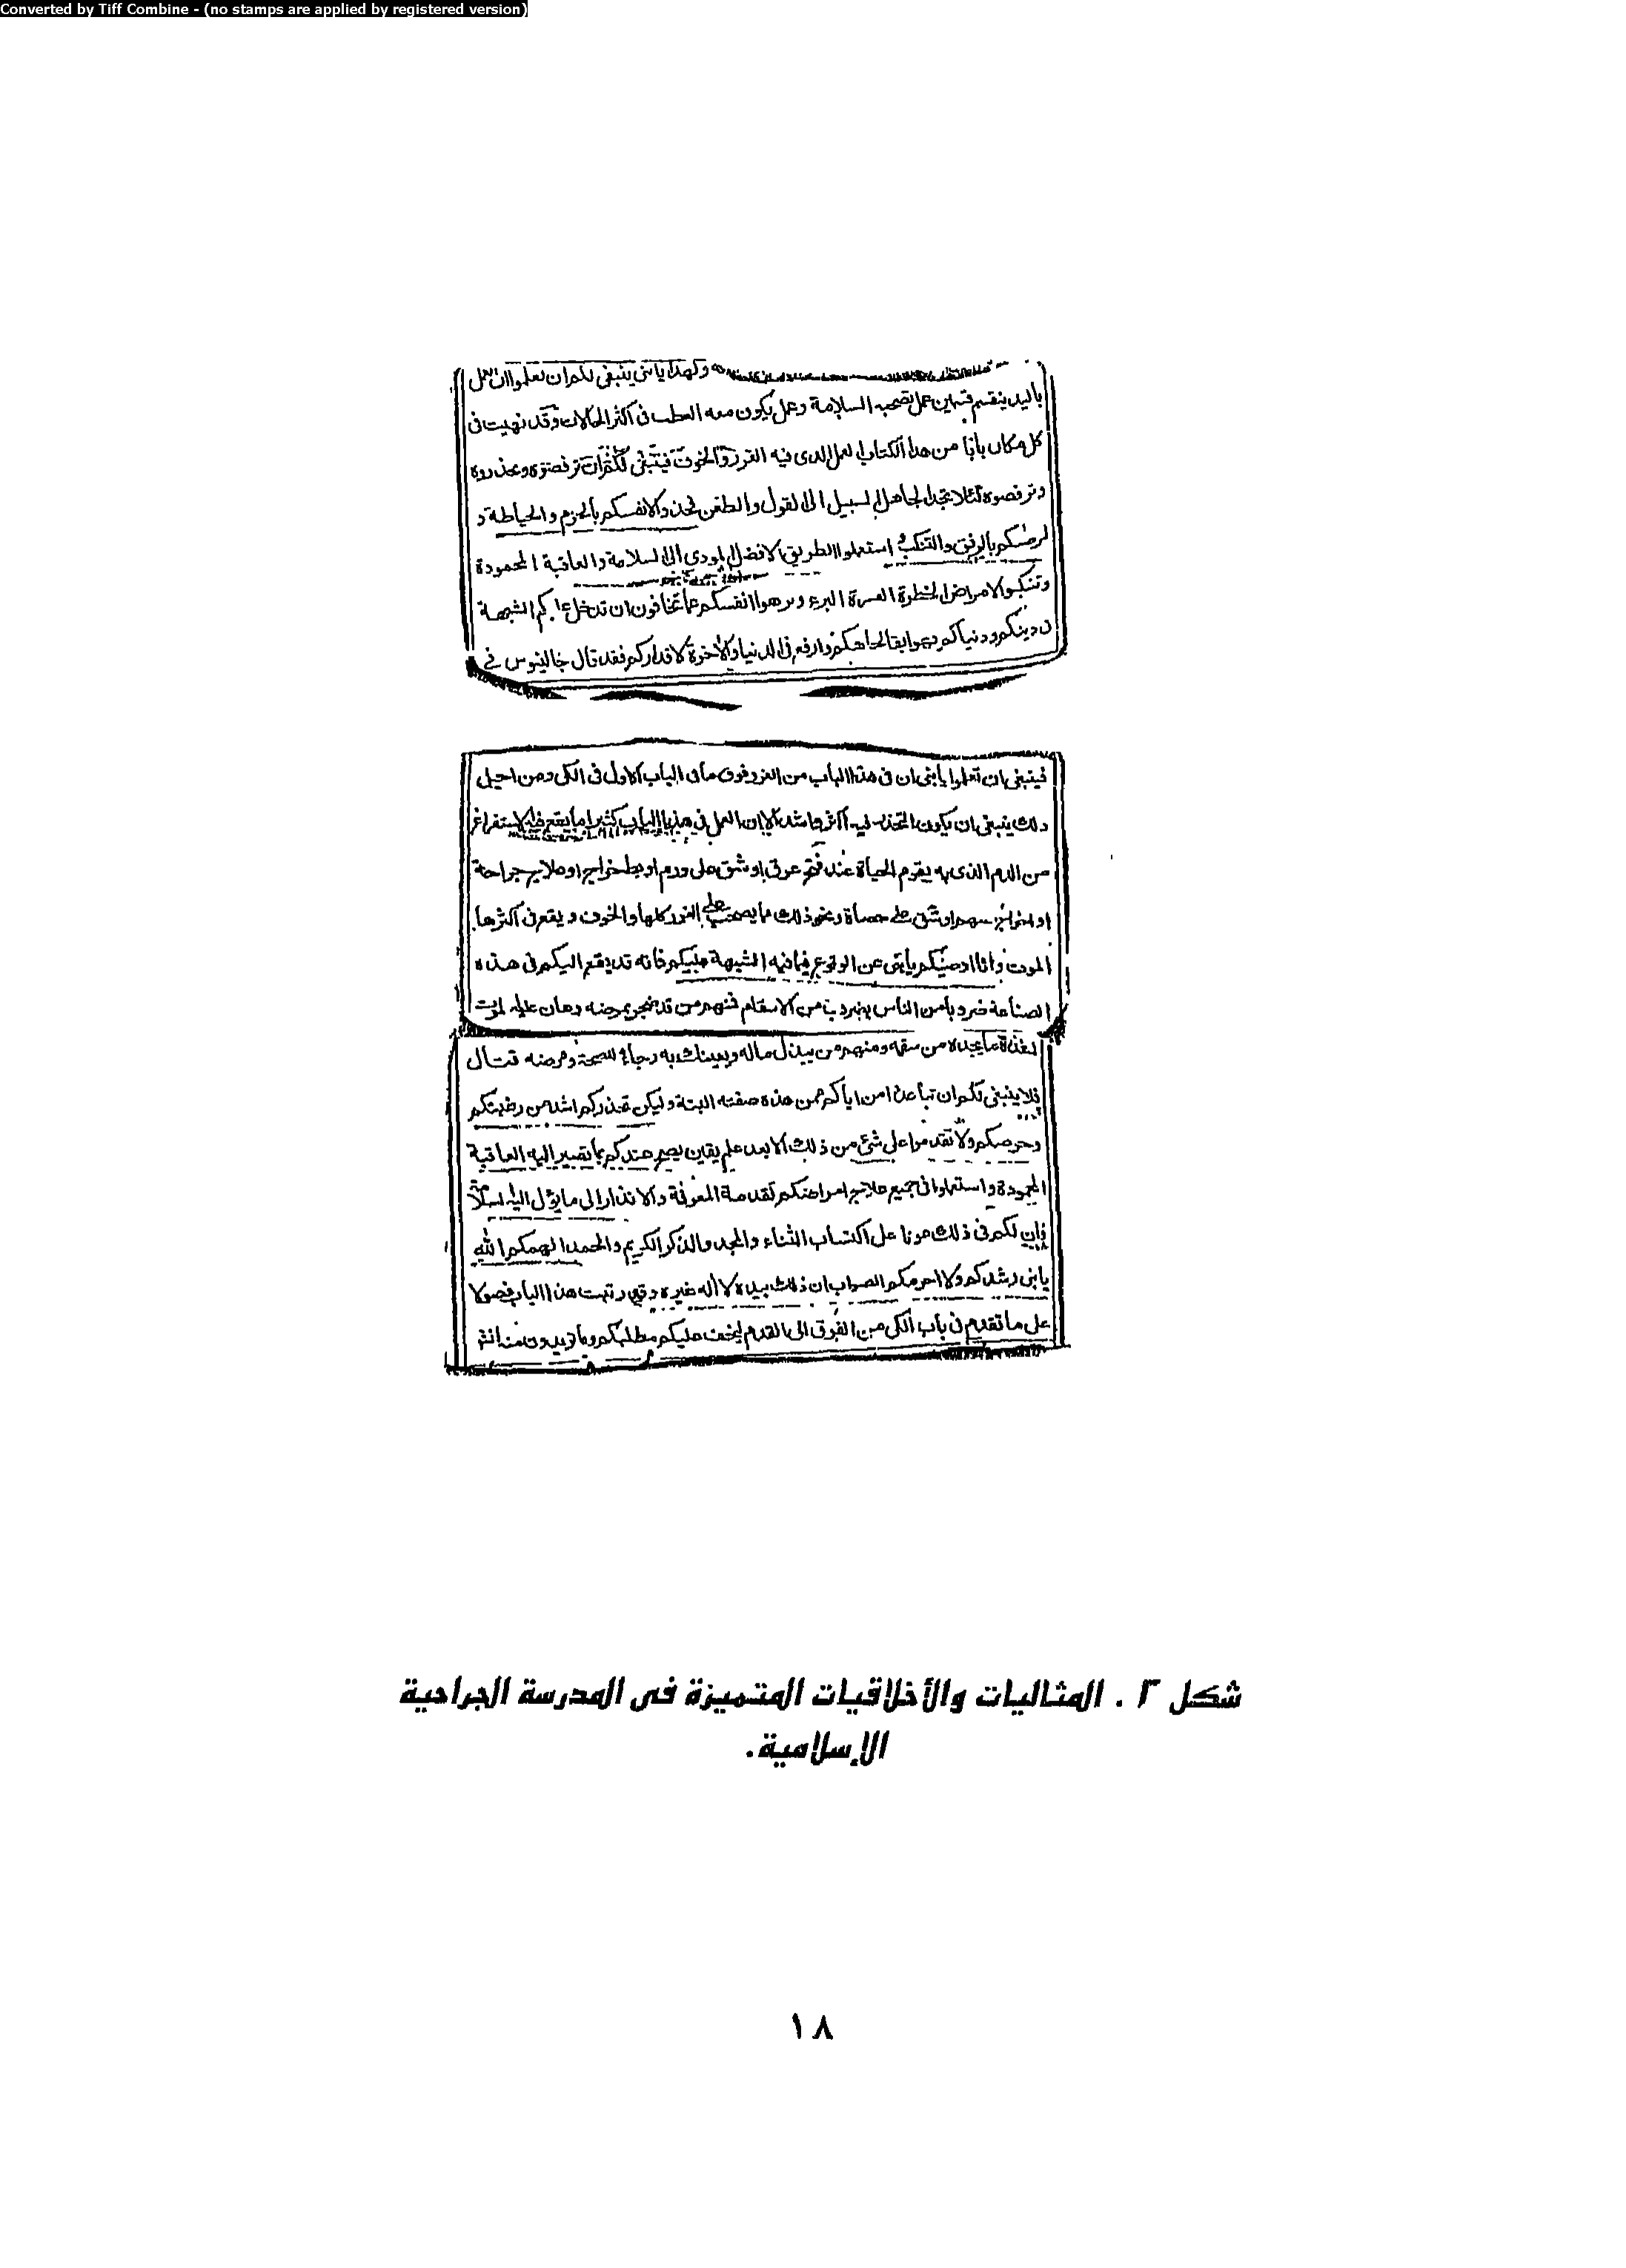 Converted by Tiff Combine - (no stamps are applied by registered version)
ولهذا يا بنى ينبغى لكم ان تعلموا ان العمل
باليد ينقسم قسمين عمل تصحبه السلامة وعمل يكون معه العطب فى اكثر الحالات وقد نبهت فى
كل مكان يأتى من هذا الكتاب العمل الذى فيه الغرر والخوف فينبغى لكم ان ترفضوه وتحذروه
وترفضوه لئلا يجد الجاهل السبيل الى القول والطعن فخذوا لانفسكم بالحزم والحياطة و
لمرضكم بالرفق والتثبت استعملوا الطريق الافضل المودى الى السلامة والعاقبة المحمودة
وتنكبوا الامراض الخطرة العسرة البرء ونزهوا انفسكم عما تخافون ان تدخل عليكم الشبهة
فى دينكم ودنياكم فهو ابقا لجاهكم وارفع فى الدنيا والاخرة لاقداركم فقد قال جالينوس فى
فينبغى ان تعلموا يا بنى ان فى هذا الباب من الغرر فوق ما فى الباب الاول فى الكى ومن اجل
ذلك ينبغى ان يكون التحذير فيه اكثر واشد لان العمل فى هذا الباب كثيرا ما يقع فيه الاستفراغ
من الدم الذى به يقوم الحياة عند فتح عرق او شق على ورم او بط خراج او علاج جراحة
او اخراج سهم او شق على حصاة ونحو ذلك مما يصحب كلها الغرر والخوف ويقع فى اكثرها
الموت وانا اوصيكم يا بنى عن الوقوع فيما فيه الشبهة عليكم فانه قد يقع اليكم فى هذه
الصناعة ضروب من الناس بضروب من الاسقام فمنهم من قد ضجر بمرضه وهان عليه الموت
لشدة ما يجده من سقمه ومنهم من يبذل ماله ويعينك به رجاء للصحة ومرضه قتال
فلا ينبغى لكم ان تساعدوا من اتاكم ممن هذه صفته البتة وليكن حذركم اشد من رغبتكم
وحرصكم ولا تقدموا على شئ من ذلك الا بعد علم يقين يصح عندكم بما تصير اليه العاقبة
المحمودة واستعملوا فى جميع علاج امراضكم تقدمة المعرفة والانذار الى ما يؤل اليه السلامة
فان لكم فى ذلك عونا على اكتساب الثناء والمجد والذكر الكريم والحمد الهمكم الله
يا بنى رشدكم ولا احرمكم الصواب ان ذلك بيده لا اله غيره وقد رتبت هذا الباب فصولا
على ما تقدم فى باب الكى من القرن الى القدم ليخف عليكم مطلبكم وما تريدون منه انشا
شكل ٢ . المثاليات والأخلاقيات المتميزة فى المدرسة الجراحية
الإسلامية.
١٨